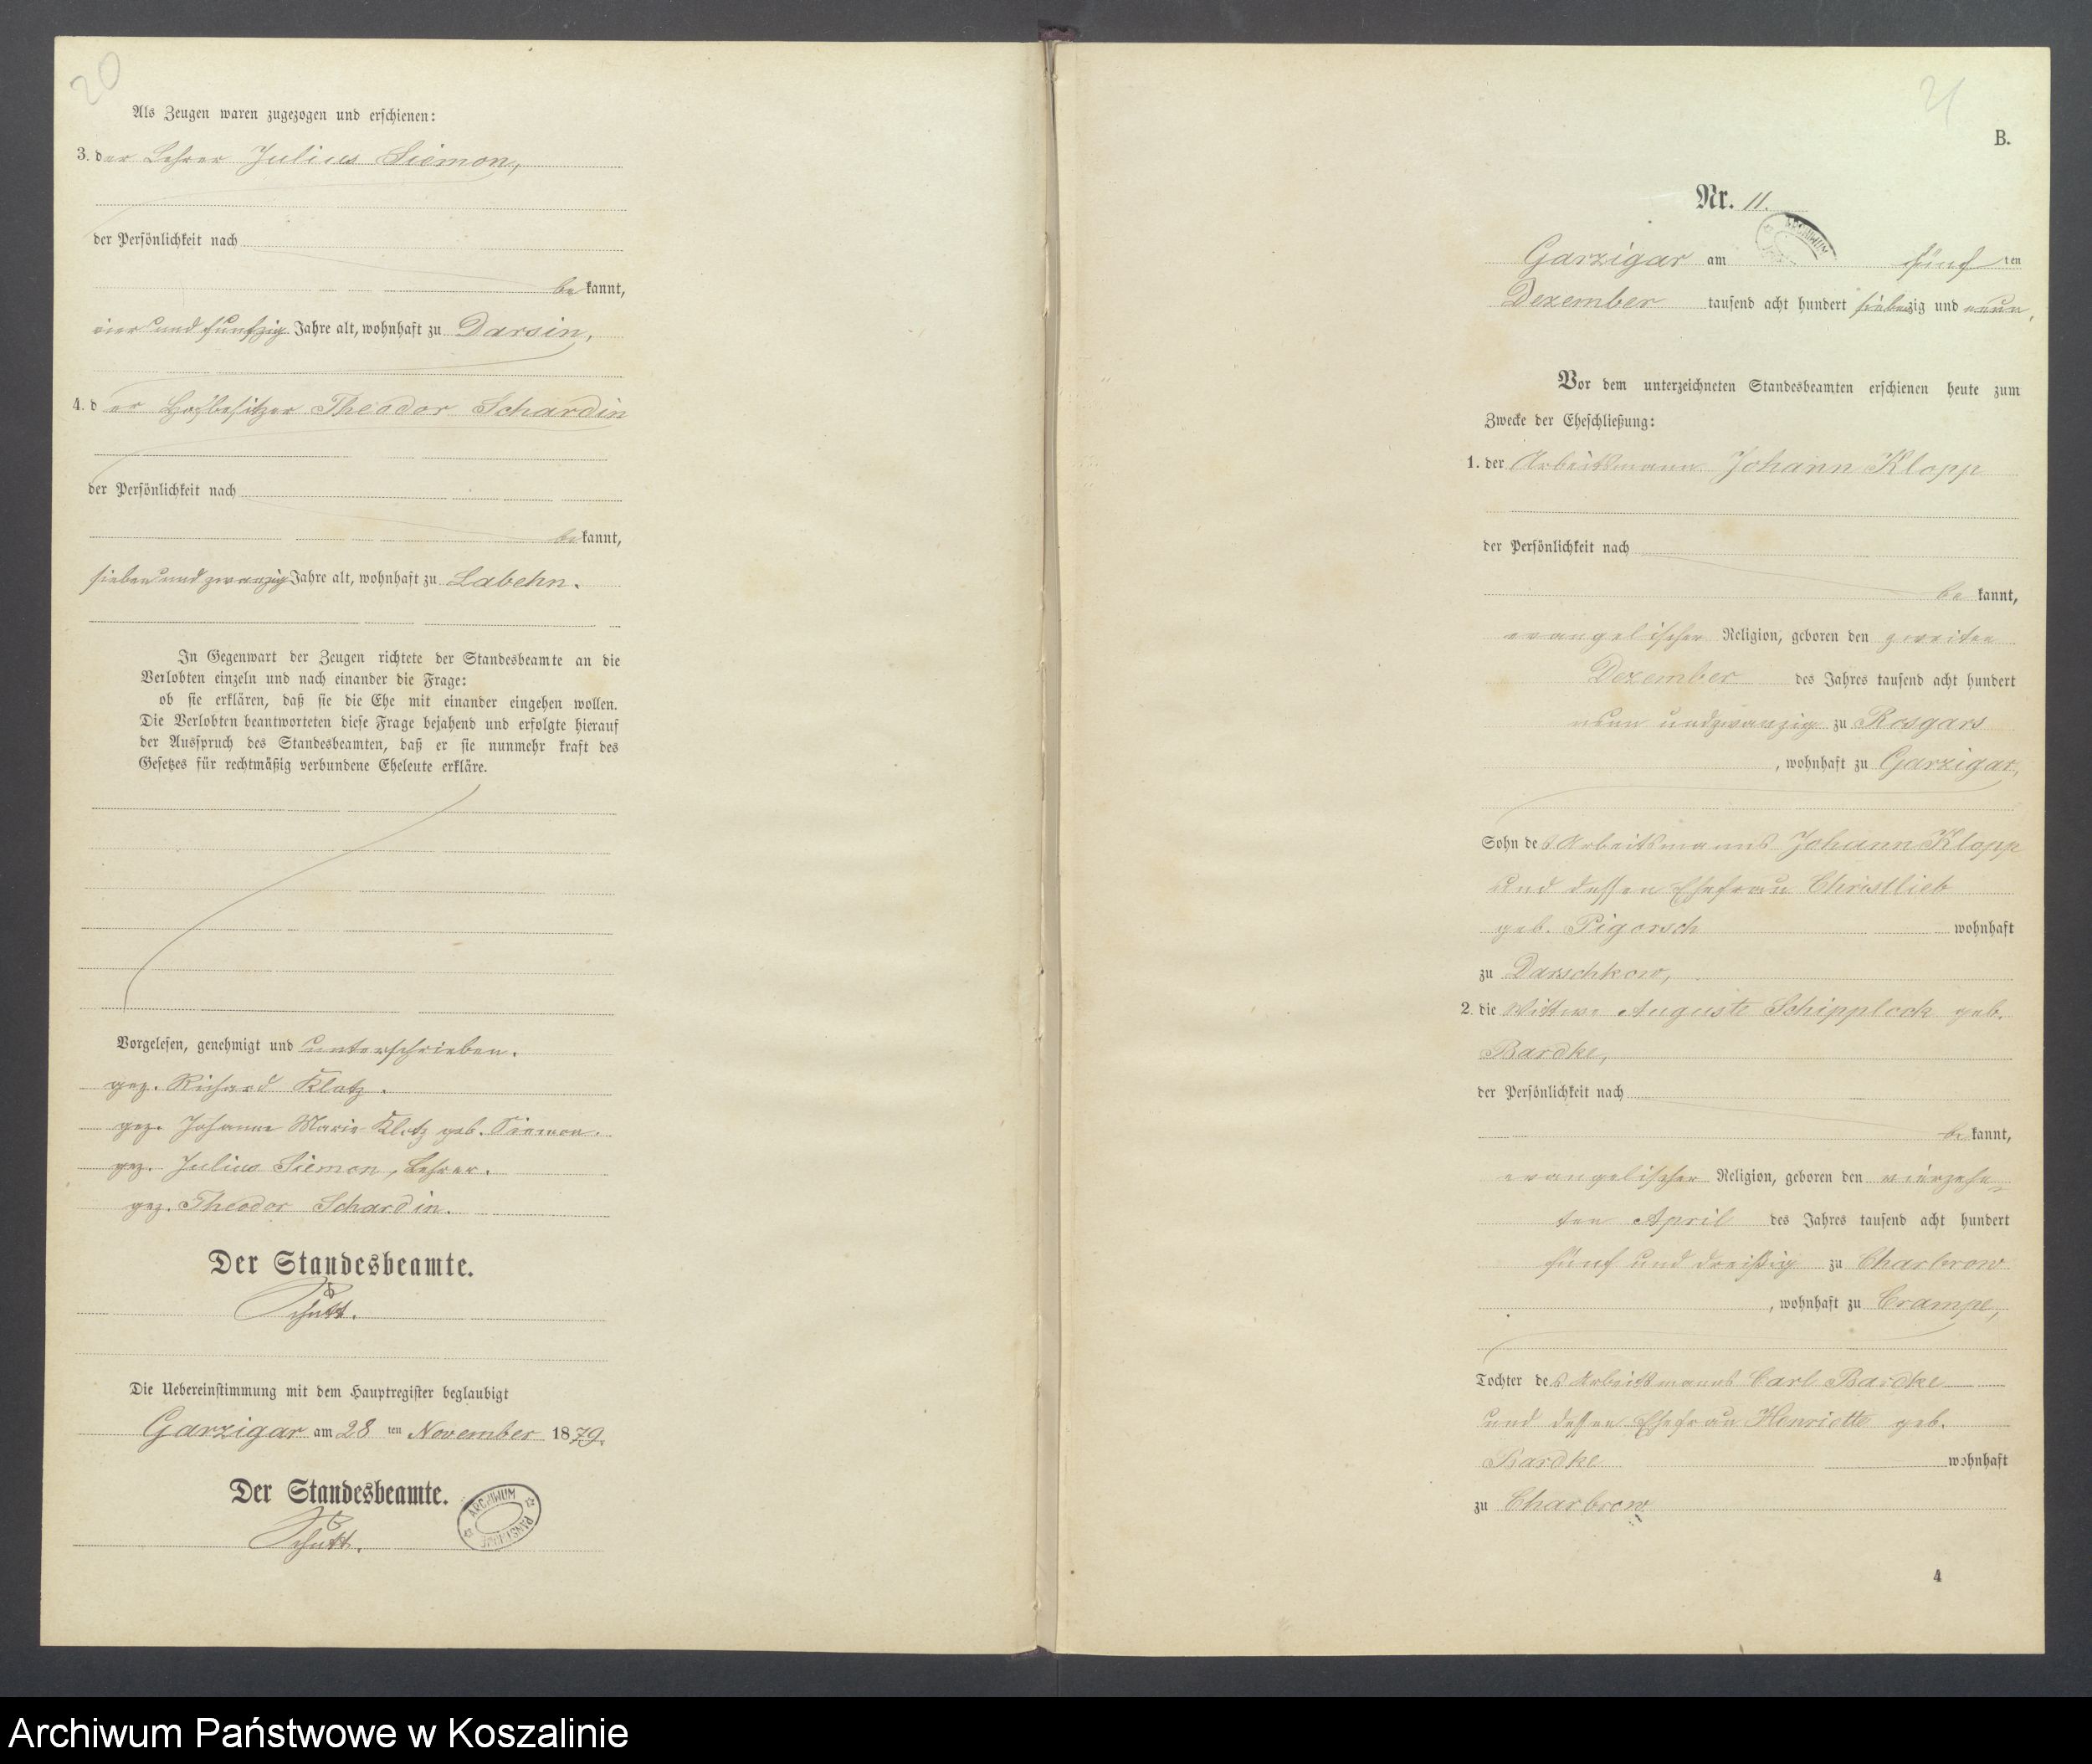 20
Als Zeugen waren zugezogen und erschienen:
3. der Lehrer Julius Siemon,
der Persönlichkeit nach
bekannt,
vier und funfzig Jahre alt, wohnhaft zu Darsin,
4. der Hofbesitzer Theodor Schardin
der Persönlichkeit nach
bekannt,
sieben und zwanzig Jahre alt, wohnhaft zu Labehn.
In Gegenwart der Zeugen richtete der Standesbeamte an die
Verlobten einzeln und nach einander die Frage:
ob sie erklären, daß sie die Ehe mit einander eingehen wollen.
Die Verlobten beantworteten diese Frage bejahend und erfolgte hierauf
der Ausspruch des Standesbeamten, daß er sie nunmehr kraft des
Gesetzes für rechtmäßig verbundene Eheleute erkläre.
Vorgelesen, genehmigt und unterschrieben.
gez. Richard Klotz.
gez. Johanna Marie Klotz geb. Siemon.
gez. Julius Siemon, Lehrer.
gez. Theodor Schardin.
Der Standesbeamte.
Schütt.
Die Uebereinstimmung mit dem Hauptregister beglaubigt
Garzigar am 28 ten November 1879.
Der Standesbeamte.
Schütt.
ARCHIWUM PAŃSTWOWE
21
B.
Nr. 11.
ARCHIWUM
Garzigar am fünf ten
Dezember tausend acht hundert siebenzig und neun,
Vor dem unterzeichneten Standesbeamten erschienen heute zum
Zwecke der Eheschließung:
1. der Arbeitsmann Johann Klopp
der Persönlichkeit nach
bekannt,
evangelischer Religion, geboren den zweiten
Dezember des Jahres tausend acht hundert
neun und zwanzig zu Rosgars
, wohnhaft zu Garzigar,
Sohn des Arbeitsmanns Johann Klopp
und dessen Ehefrau Christlieb
geb. Pigorsch wohnhaft
zu Darschkow,
2. die Wittwe Auguste Schipplock geb.
Bardke,
der Persönlichkeit nach
bekannt,
evangelischer Religion, geboren den vierzehn-
ten April des Jahres tausend acht hundert
fünf und dreißig zu Charbrow
, wohnhaft zu Crampe,
Tochter des Arbeitsmanns Carl Bardke
und dessen Ehefrau Henriette geb.
Bardke wohnhaft
zu Charbrow
4
Archiwum Państwowe w Koszalinie